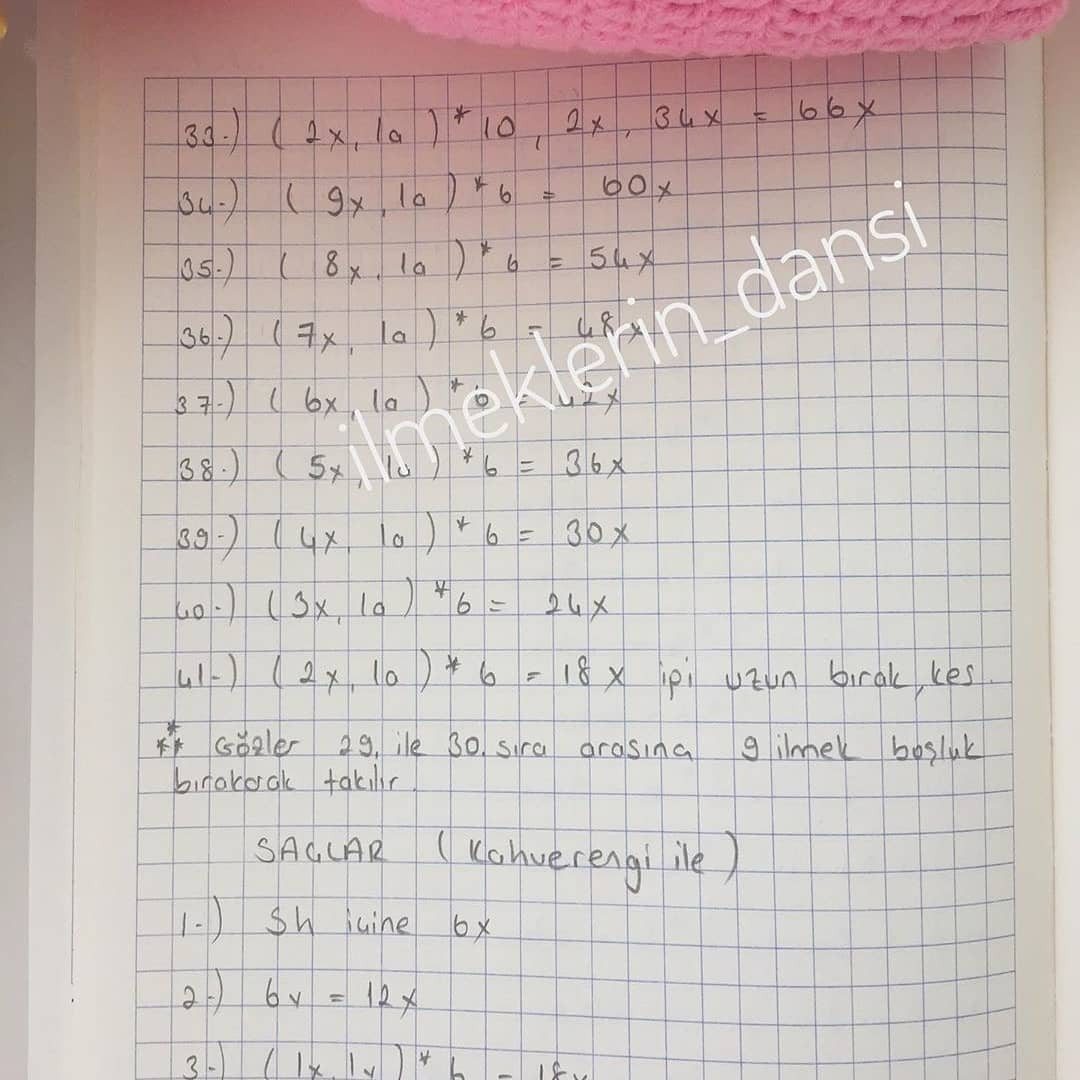 33-) ( 2x, 1a ) * 10, 2x, 34x = 66x
34-) ( 9x, 1a ) * 6 = 60x
35-) ( 8x, 1a ) * 6 = 54x
36-) ( 7x, 1a ) * 6 = 48x
37-) ( 6x, 1a ) * 6 = 42x
38-) ( 5x, 1a ) * 6 = 36x
39-) ( 4x, 1a ) * 6 = 30x
40-) ( 3x, 1a ) * 6 = 24x
41-) ( 2x, 1a ) * 6 = 18x ipi uzun bırak, kes.
*** Gözler 29. ile 30. sıra arasına 9 ilmek boşluk
bırakarak takılır.
SAÇLAR ( Kahverengi ile )
1-) Sh içine 6x
2-) 6v = 12x
3-) ( 1x, 1v ) * 6 = 18x
ilmeklerin_dansi